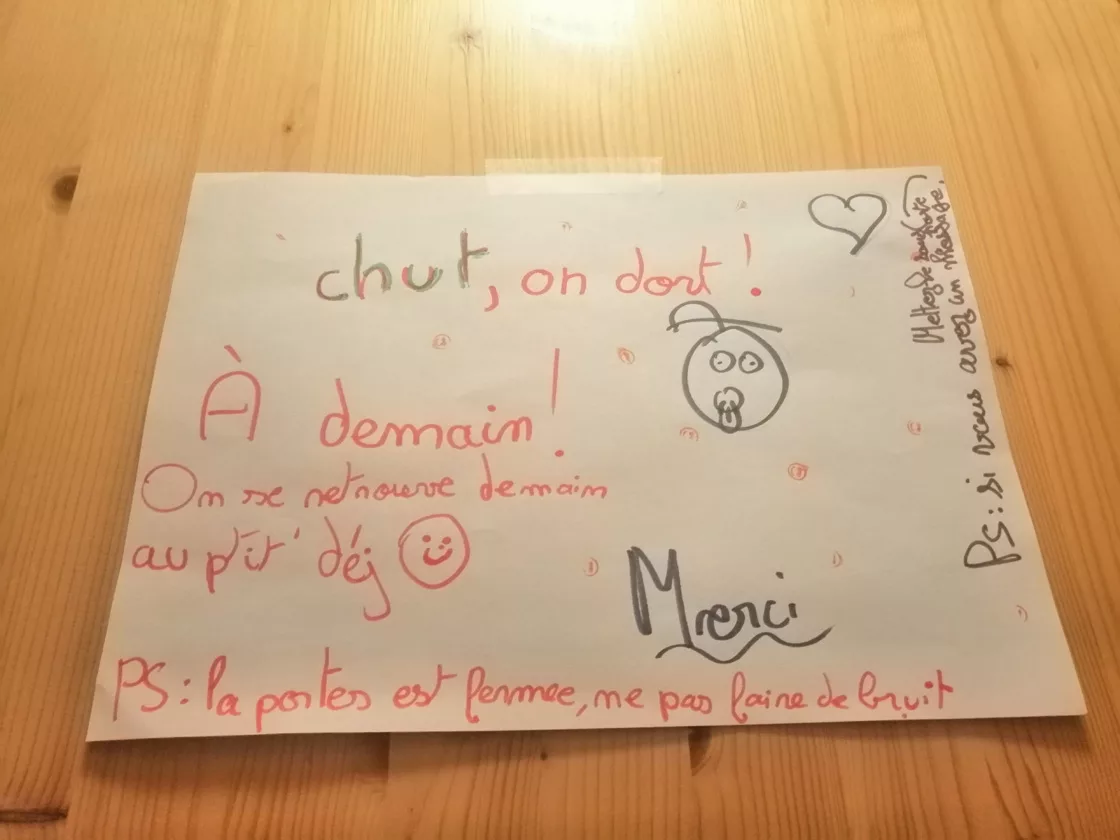 chut, on dort !
À demain !
On se retrouve demain
au p'tit' déj
Merci
PS : la portes est fermee, ne pas faire de bruit
PS : si vous avez un message,
Mettez le sous